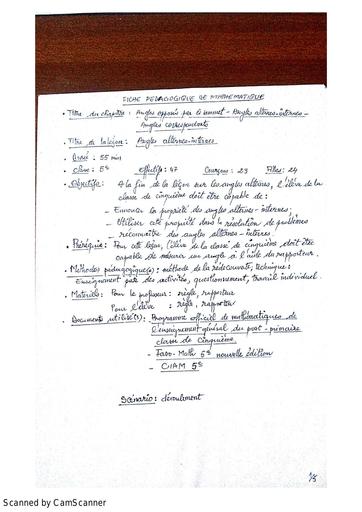 FICHE PEDAGOGIQUE DE MATHEMATIQUE
- Titre du chapitre : Angles opposés par le sommet - Angles alternes-internes -
Angles correspondants
- Titre de la leçon : Angles alternes-internes.
- Durée : 55 min
- Classe : 5e Effectifs : 47 Garçons : 23 Filles : 24
- Objectifs : A la fin de la leçon sur les angles alternes, l'élève de la
classe de cinquième doit être capable de :
- Enoncer la propriété des angles alternes-internes ;
- Utiliser cette propriété dans la résolution de problèmes
- reconnaître des angles alternes-internes.
- Prérequis : Pour cette leçon, l'élève de la classe de cinquième doit être
capable de mesurer un angle à l'aide du rapporteur.
- Méthodes pédagogique(s) : méthode de la redécouverte, technique :
Enseignement par des activités, questionnement, travail individuel.
- Matériels : Pour le professeur : règle, rapporteur
Pour l'élève : règle, rapporteur
- Documents utilisé(s) : Programme officiel de mathématiques de
l'enseignement général du post-primaire
classe de Cinquième.
- Faso-Math 5e nouvelle édition
- CIAM 5e
Scénario : déroulement
1/5
Scanned by CamScanner